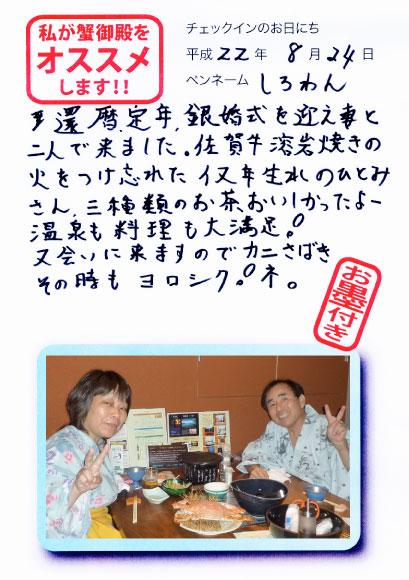 私が蟹御殿を
オススメ
します!!
チェックインのお日にち
平成22年 8月24日
ペンネーム しろわん
還暦、定年、銀婚式を迎え妻と
二人で来ました。佐賀牛溶岩焼きの
火をつけ忘れた 生れのひとみ
さん、三種類のお茶おいしかったよー
温泉も料理も大満足!
又会いに来ますのでカニさばき
その時もヨロシク!ネ。
お墨付き